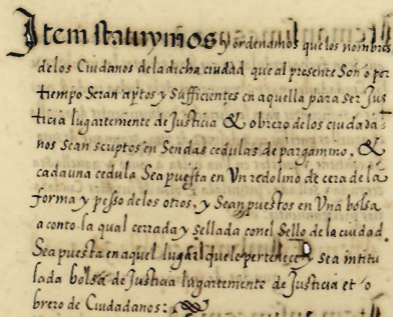 Item statuymos y ordenamos que los nombres
de los Ciudanos de la dicha ciudad que al presente Son o per
tiempo Seran aptos y Sufficientes en aquella para ser Jus
ticia lugarteniente de Justicia & obrero de los ciudada
nos Sean scriptos en Sendas cedulas de pargamino, &
cada una cedula Sea puesta en Un redolino de cera de la
forma y pesso de los otros, y Sean puestos en Una bolsa
a conto la qual cerrada y sellada con el Sello de la ciudad
Sea puesta en aquel lugar que le pertenece y sea intitu
lada bolsa de Justicia lugarteniente de Justicia et o
brero de Ciudadanos: